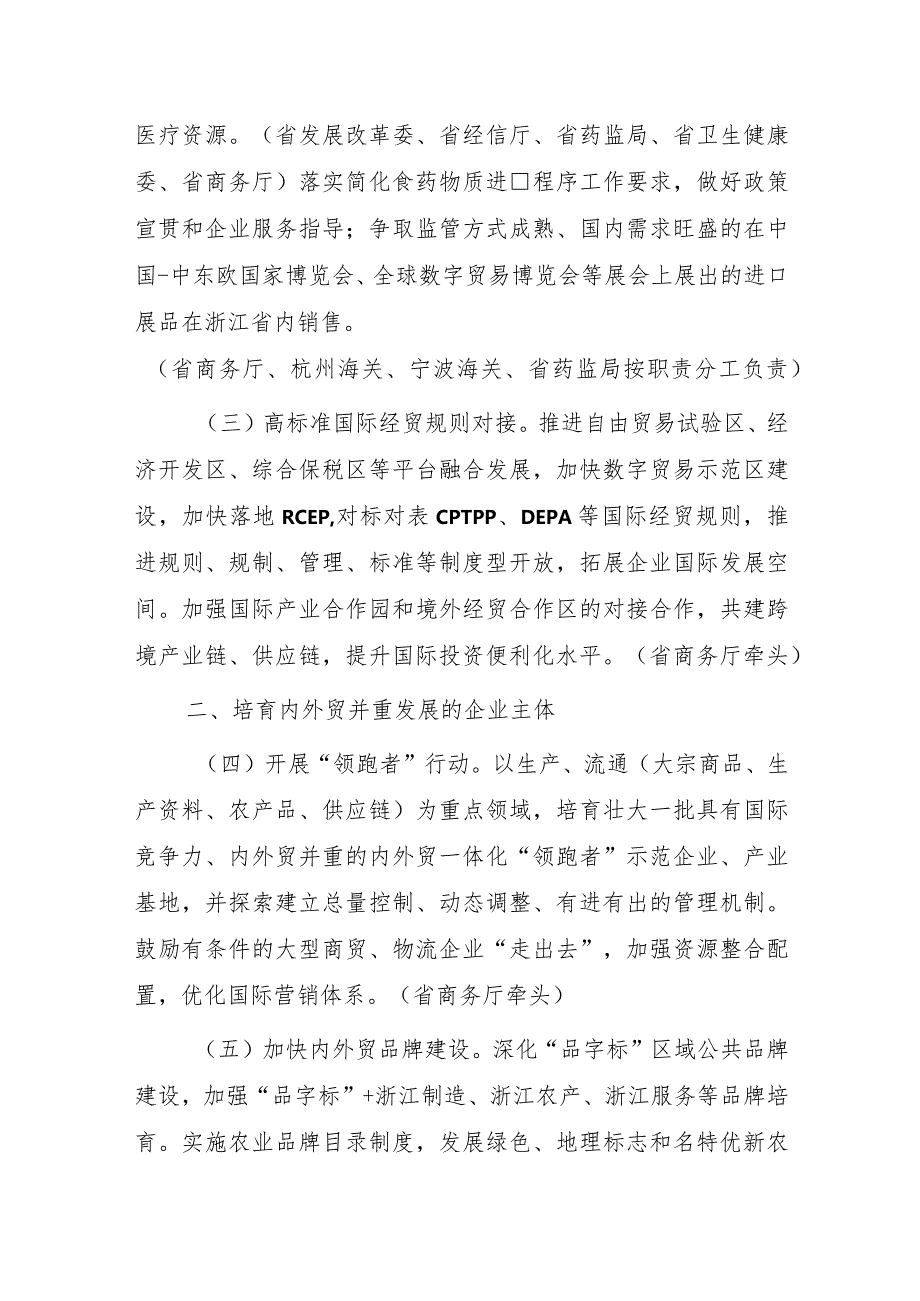 医疗资源。（省发展改革委、省经信厅、省药监局、省卫生健康
委、省商务厅）落实简化食药物质进□程序工作要求，做好政策
宣贯和企业服务指导；争取监管方式成熟、国内需求旺盛的在中
国-中东欧国家博览会、全球数字贸易博览会等展会上展出的进口
展品在浙江省内销售。
（省商务厅、杭州海关、宁波海关、省药监局按职责分工负责）
（三）高标准国际经贸规则对接。推进自由贸易试验区、经
济开发区、综合保税区等平台融合发展，加快数字贸易示范区建
设，加快落地 RCEP,对标对表 CPTPP、DEPA 等国际经贸规则，推
进规则、规制、管理、标准等制度型开放，拓展企业国际发展空
间。加强国际产业合作园和境外经贸合作区的对接合作，共建跨
境产业链、供应链，提升国际投资便利化水平。（省商务厅牵头）
二、培育内外贸并重发展的企业主体
（四）开展“领跑者”行动。以生产、流通（大宗商品、生
产资料、农产品、供应链）为重点领域，培育壮大一批具有国际
竞争力、内外贸并重的内外贸一体化“领跑者”示范企业、产业
基地，并探索建立总量控制、动态调整、有进有出的管理机制。
鼓励有条件的大型商贸、物流企业“走出去”，加强资源整合配
置，优化国际营销体系。（省商务厅牵头）
（五）加快内外贸品牌建设。深化“品字标”区域公共品牌
建设，加强“品字标”+浙江制造、浙江农产、浙江服务等品牌培
育。实施农业品牌目录制度，发展绿色、地理标志和名特优新农